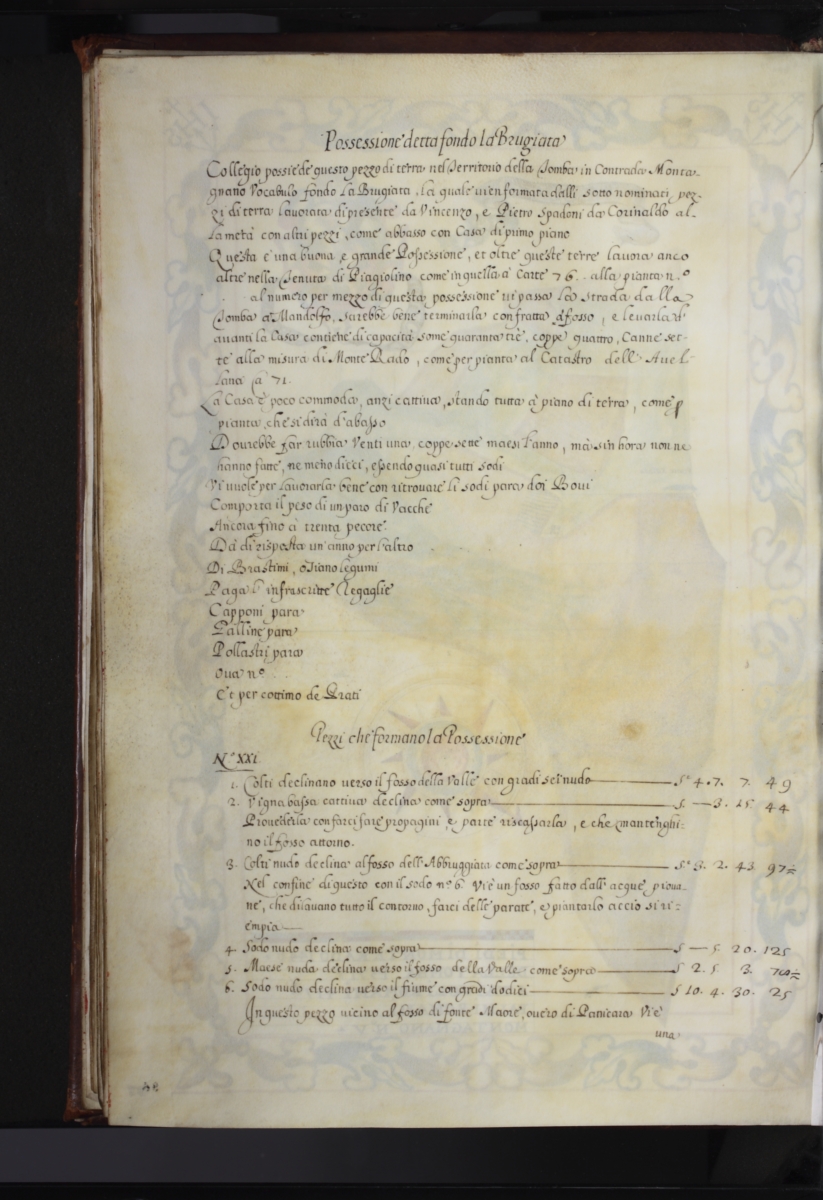 Possessione detta fondo la Brugiata
Collegio possiede questo pezzo di terra nel Territorio della Tomba in Contrada Monta-
gnano Vocabulo fondo la Brugiata, la quale vien formata dalli sotto nominati pez-
zi di terra lavorata di presente da Vincenzo, e Pietro Spadoni da Corinaldo al-
la metà con altri pezzi, come abbasso con Casa di primo piano
Questa è una buona e grande Possessione, et oltre queste terre lavora anco
altre nella Tenuta di Piagiolino come in quella à Carte 76. alla pianta n.º
al numero per mezzo di questa possessione vi passa la Strada dalla
Tomba à Mandolfo, sarebbe bene terminarla con fratta, e fosso, e levarla d'
avanti la Casa contiene di capacità some quaranta trè, coppe quattro, Canne set-
te alla misura di Monte Rado, come per pianta al Catastro dell' Avel-
lana à 71.
La Casa è poco commoda, anzi cattiva, stando tutta à piano di terra, come p
pianta che si dirà d'abasso
Dovrebbe far rubbia Venti una, coppe sette maesi l'anno, mà sin hora non ne
hanno fatte, ne meno dieci, essendo quasi tutti sodi
Vi vuole per lavorarla bene con ritrovare li sodi para doi Bovi
Comporta il peso di un paro di Vacche
Ancora fino à trenta pecore
Dà di risposta un'anno per l'altro
Di Brastimi, o siano legumi
Paga l' infrascritte Regaglie
Capponi para
Galline para
Pollastri para
Ova nº
Et per cottimo de Prati
Pezzi che formano la Possessione
Nº XXI
1. Colti declinano verso il fosso della Valle con gradi sei nudo — S.e 4. 7. 7. 49
2. Vigna bassa cattiva declina come sopra — S. — 3. 15. 44
Provederla con farci fare propagini, e parte riscassarla, e che mantenghi-
no il fosso attorno.
3. Colti nudo declina al fosso dell'Abbruggiata come sopra — S.e 3. 2. 43 97½
Nel confine di questo con il sodo nº 6 Vi è un fosso fatto dall'acque piova-
ne, che dilavano tutto il contorno, farci delle parate, e piantarlo acciò si ri-
empia
4. Sodo nudo declina come sopra — S — 5. 20. 125
5. Maese nuda declina verso il fosso della Valle come sopra — S 2. 5 3. 70½
6. Sodo nudo declina verso il fiume con gradi dodici — S 10. 4. 30. 25
In questo pezzo vicino al fosso di fonte Maore, overo di Paticara Vi è
una
48